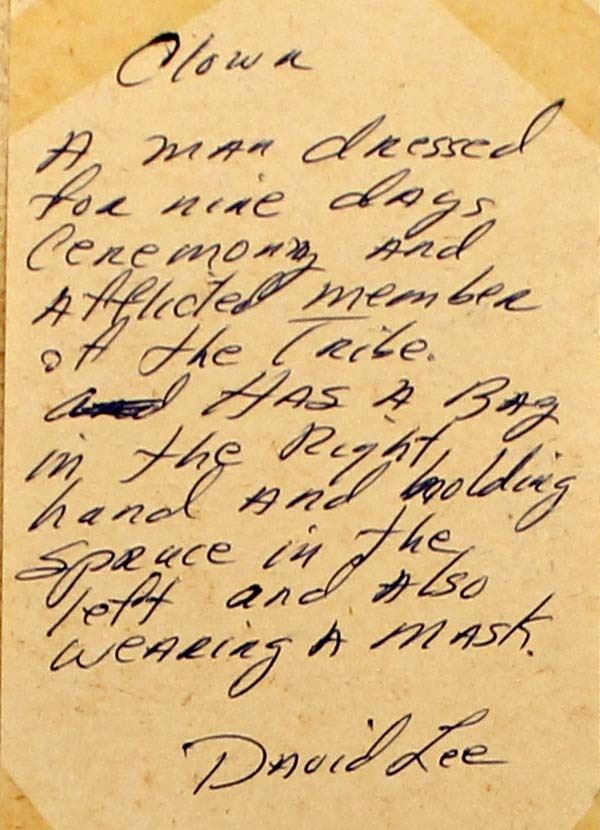 Clown
A man dressed
for nine days
Ceremony and
Afflicted member
of the Tribe.
and Has A Bag
in the Right
hand and holding
Spruce in the
left and Also
wearing A mask.
David Lee